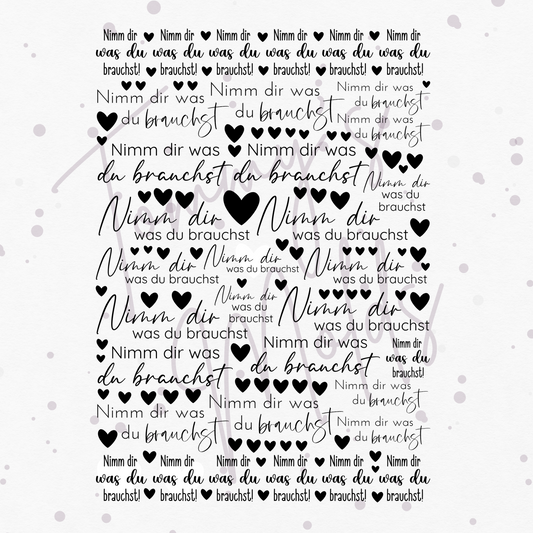 Nimm dir Nimm dir Nimm dir Nimm dir Nimm dir Nimm dir
was du was du was du was du was du was du
brauchst! brauchst! brauchst! brauchst! brauchst! brauchst!
Nimm dir was
du brauchst
Nimm dir was
du brauchst
Nimm dir was
du brauchst
Nimm dir was
du brauchst
Nimm dir was
du brauchst
Nimm dir was
du brauchst
Nimm dir
was du
brauchst
Nimm dir
was du brauchst
Nimm dir
was du brauchst
Nimm dir
was du brauchst
Nimm dir
was du brauchst
Nimm dir
was du brauchst
Nimm dir
was du brauchst
Nimm dir
was du
brauchst
Nimm dir
was du brauchst
Nimm dir was
du brauchst
Nimm dir was
du brauchst
Nimm dir
was du
brauchst!
Nimm dir was
du brauchst
Nimm dir was
du brauchst
Nimm dir was
du brauchst
Nimm dir was
du brauchst
Nimm dir Nimm dir Nimm dir Nimm dir Nimm dir Nimm dir
was du was du was du was du was du was du
brauchst! brauchst! brauchst! brauchst! brauchst! brauchst!